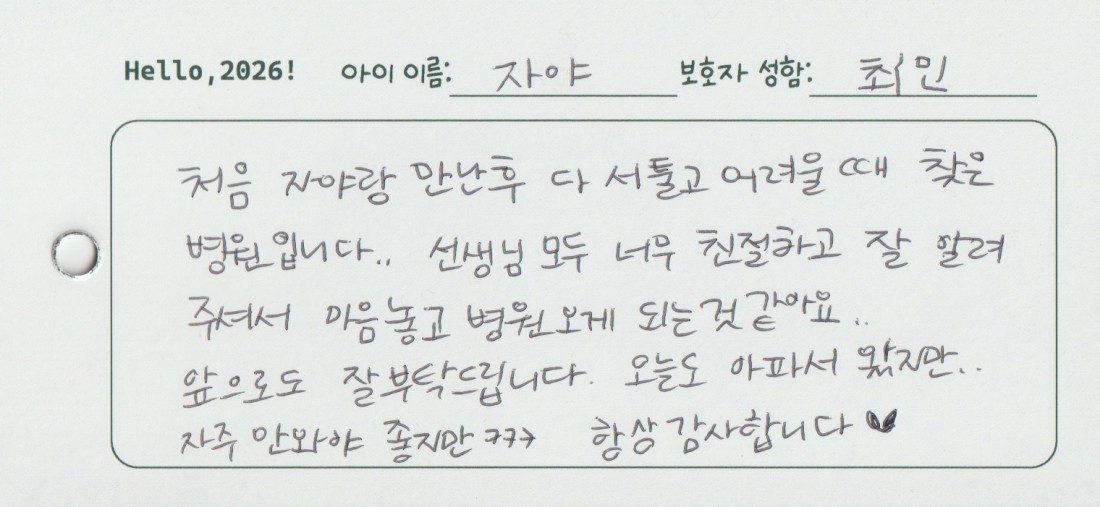 Hello,2026! 아이 이름: 자야 보호자 성함: 최민
처음 자야랑 만난후 다 서툴고 어려울 때 찾은
병원입니다.. 선생님 모두 너무 친절하고 잘 알려
주셔서 마음놓고 병원오게 되는것 같아요..
앞으로도 잘부탁드립니다. 오늘도 아파서 왔지만..
자주 안와야 좋지만 ㅋㅋㅋ 항상 감사합니다